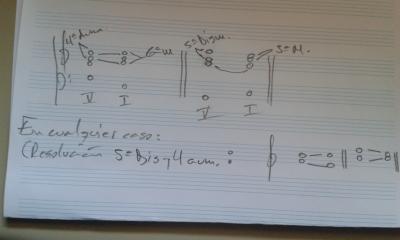 4ª Aum. 6ª m 5ª Dism. 3ª M.
V I V I
En cualquier caso:
(Resolución 5ª Dis y 4 aum. :